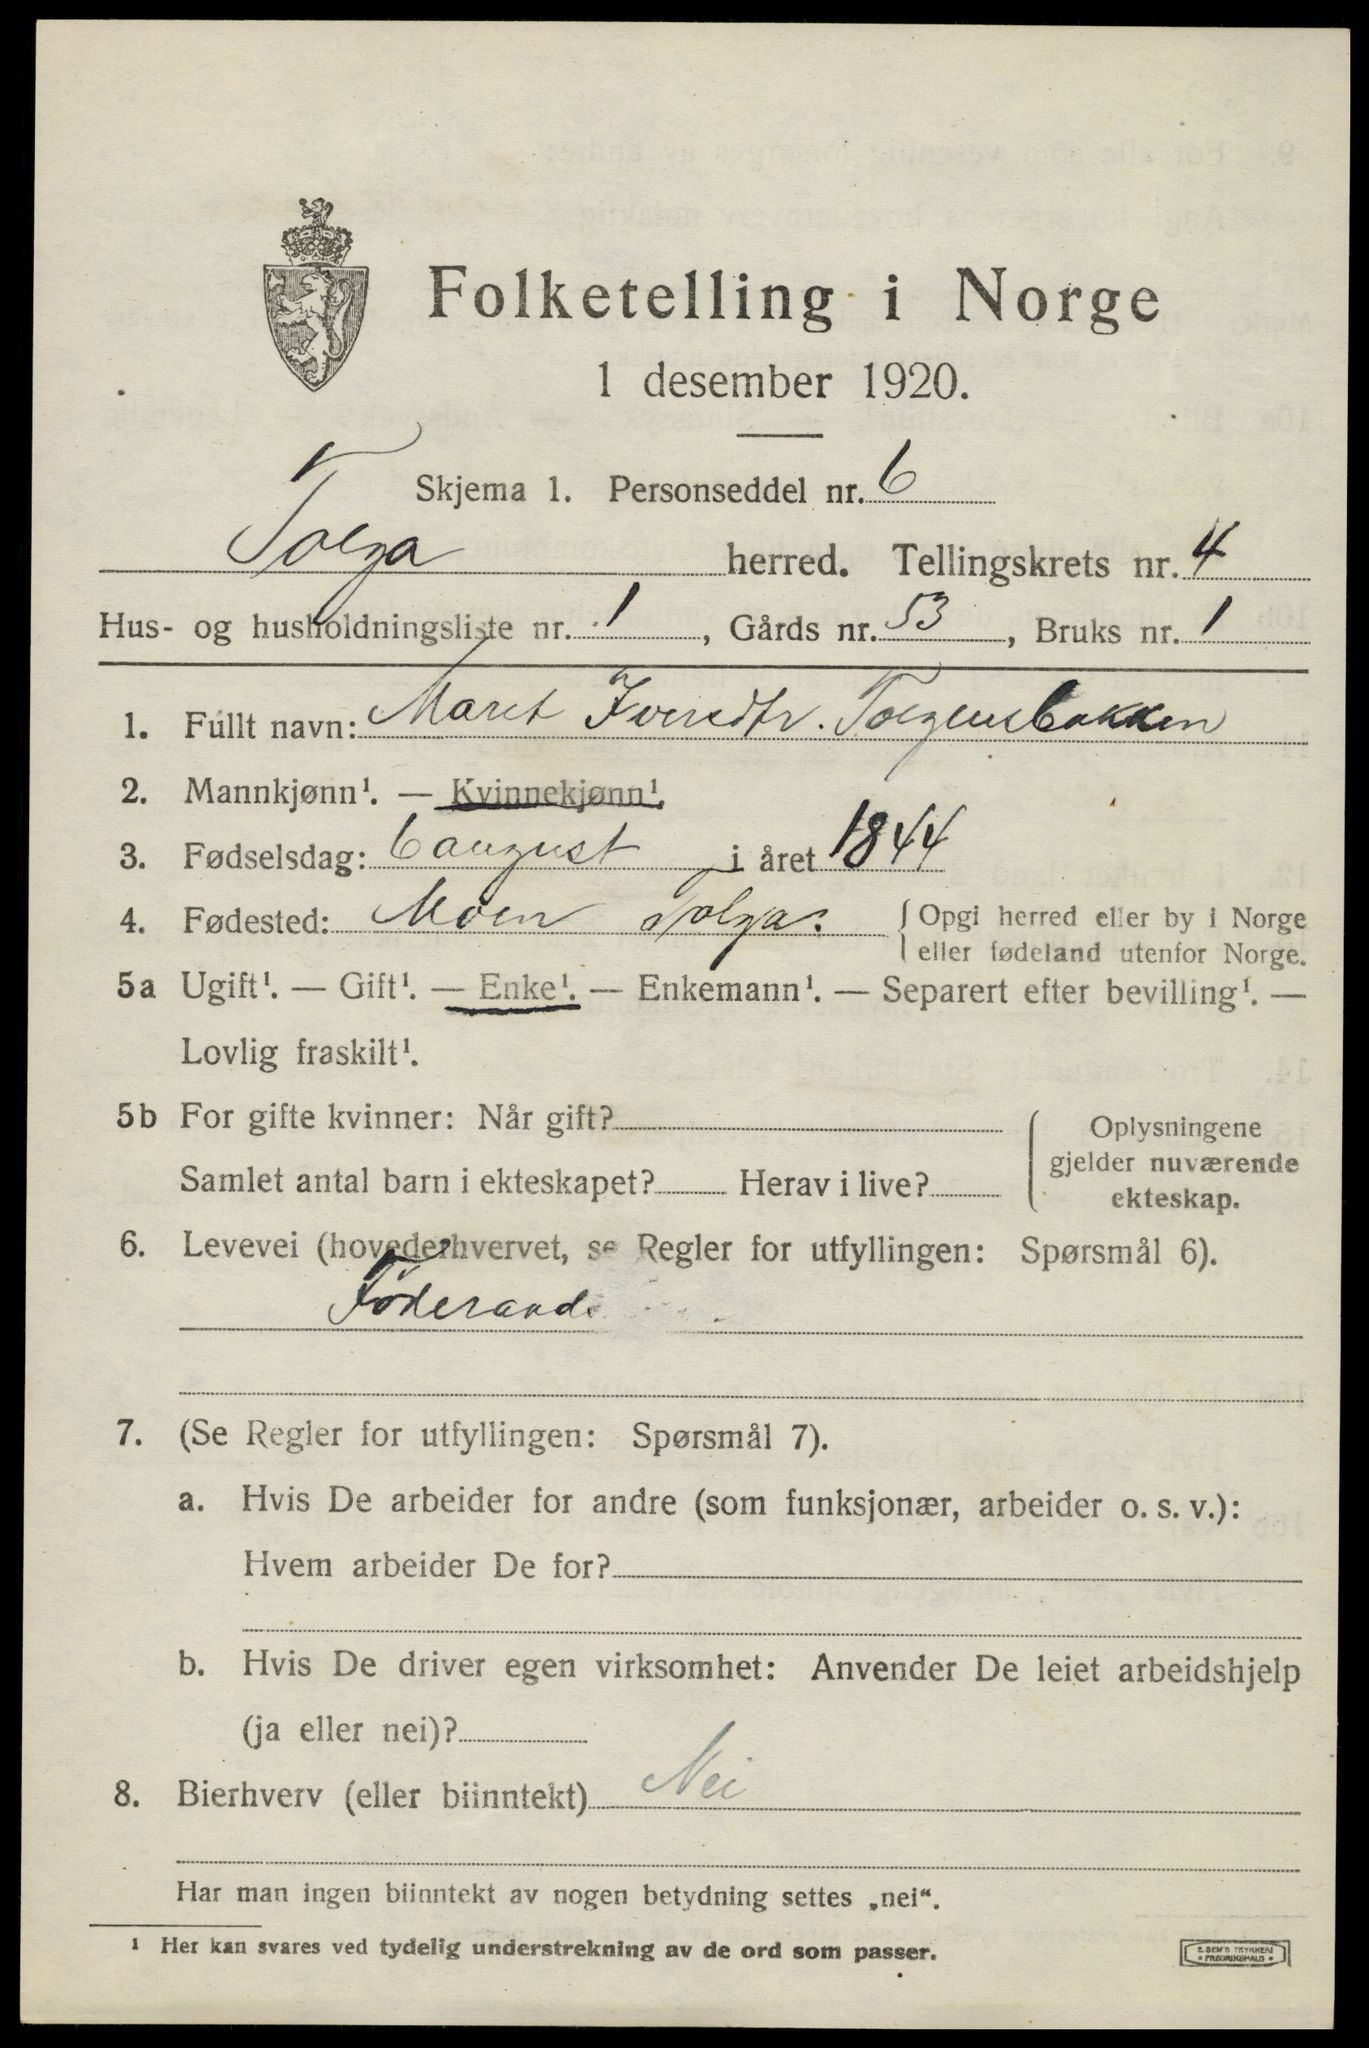 Folketelling i Norge
1 desember 1920.
Skjema 1. Personseddel nr. 6
Tolga herred. Tellingskrets nr. 4
Hus- og husholdningsliste nr. 1, Gårds nr. 53, Bruks nr. 1
1. Fullt navn: Maret Iversdtr. Tolgensbakken
2. Mannkjønn¹. — Kvinnekjønn¹.
3. Fødselsdag: 6 august i året 1844
4. Fødested: Moen Tolga. { Opgi herred eller by i Norge
eller fødeland utenfor Norge.
5a Ugift¹. — Gift¹. — Enke¹. — Enkemann¹. — Separert efter bevilling¹. —
Lovlig fraskilt¹.
5b For gifte kvinner: Når gift?
Samlet antal barn i ekteskapet? Herav i live?
{ Oplysningene
gjelder nuværende
ekteskap.
6. Levevei (hovederhvervet, se Regler for utfyllingen: Spørsmål 6).
Føderaads
7. (Se Regler for utfyllingen: Spørsmål 7).
a. Hvis De arbeider for andre (som funksjonær, arbeider o. s. v.):
Hvem arbeider De for?
b. Hvis De driver egen virksomhet: Anvender De leiet arbeidshjelp
(ja eller nei)?
8. Bierhverv (eller biinntekt) Nei
Har man ingen biinntekt av nogen betydning settes „nei“.
¹ Her kan svares ved tydelig understrekning av de ord som passer.
E. SEM'S TRYKKERI
• FREDRIKSHALD •